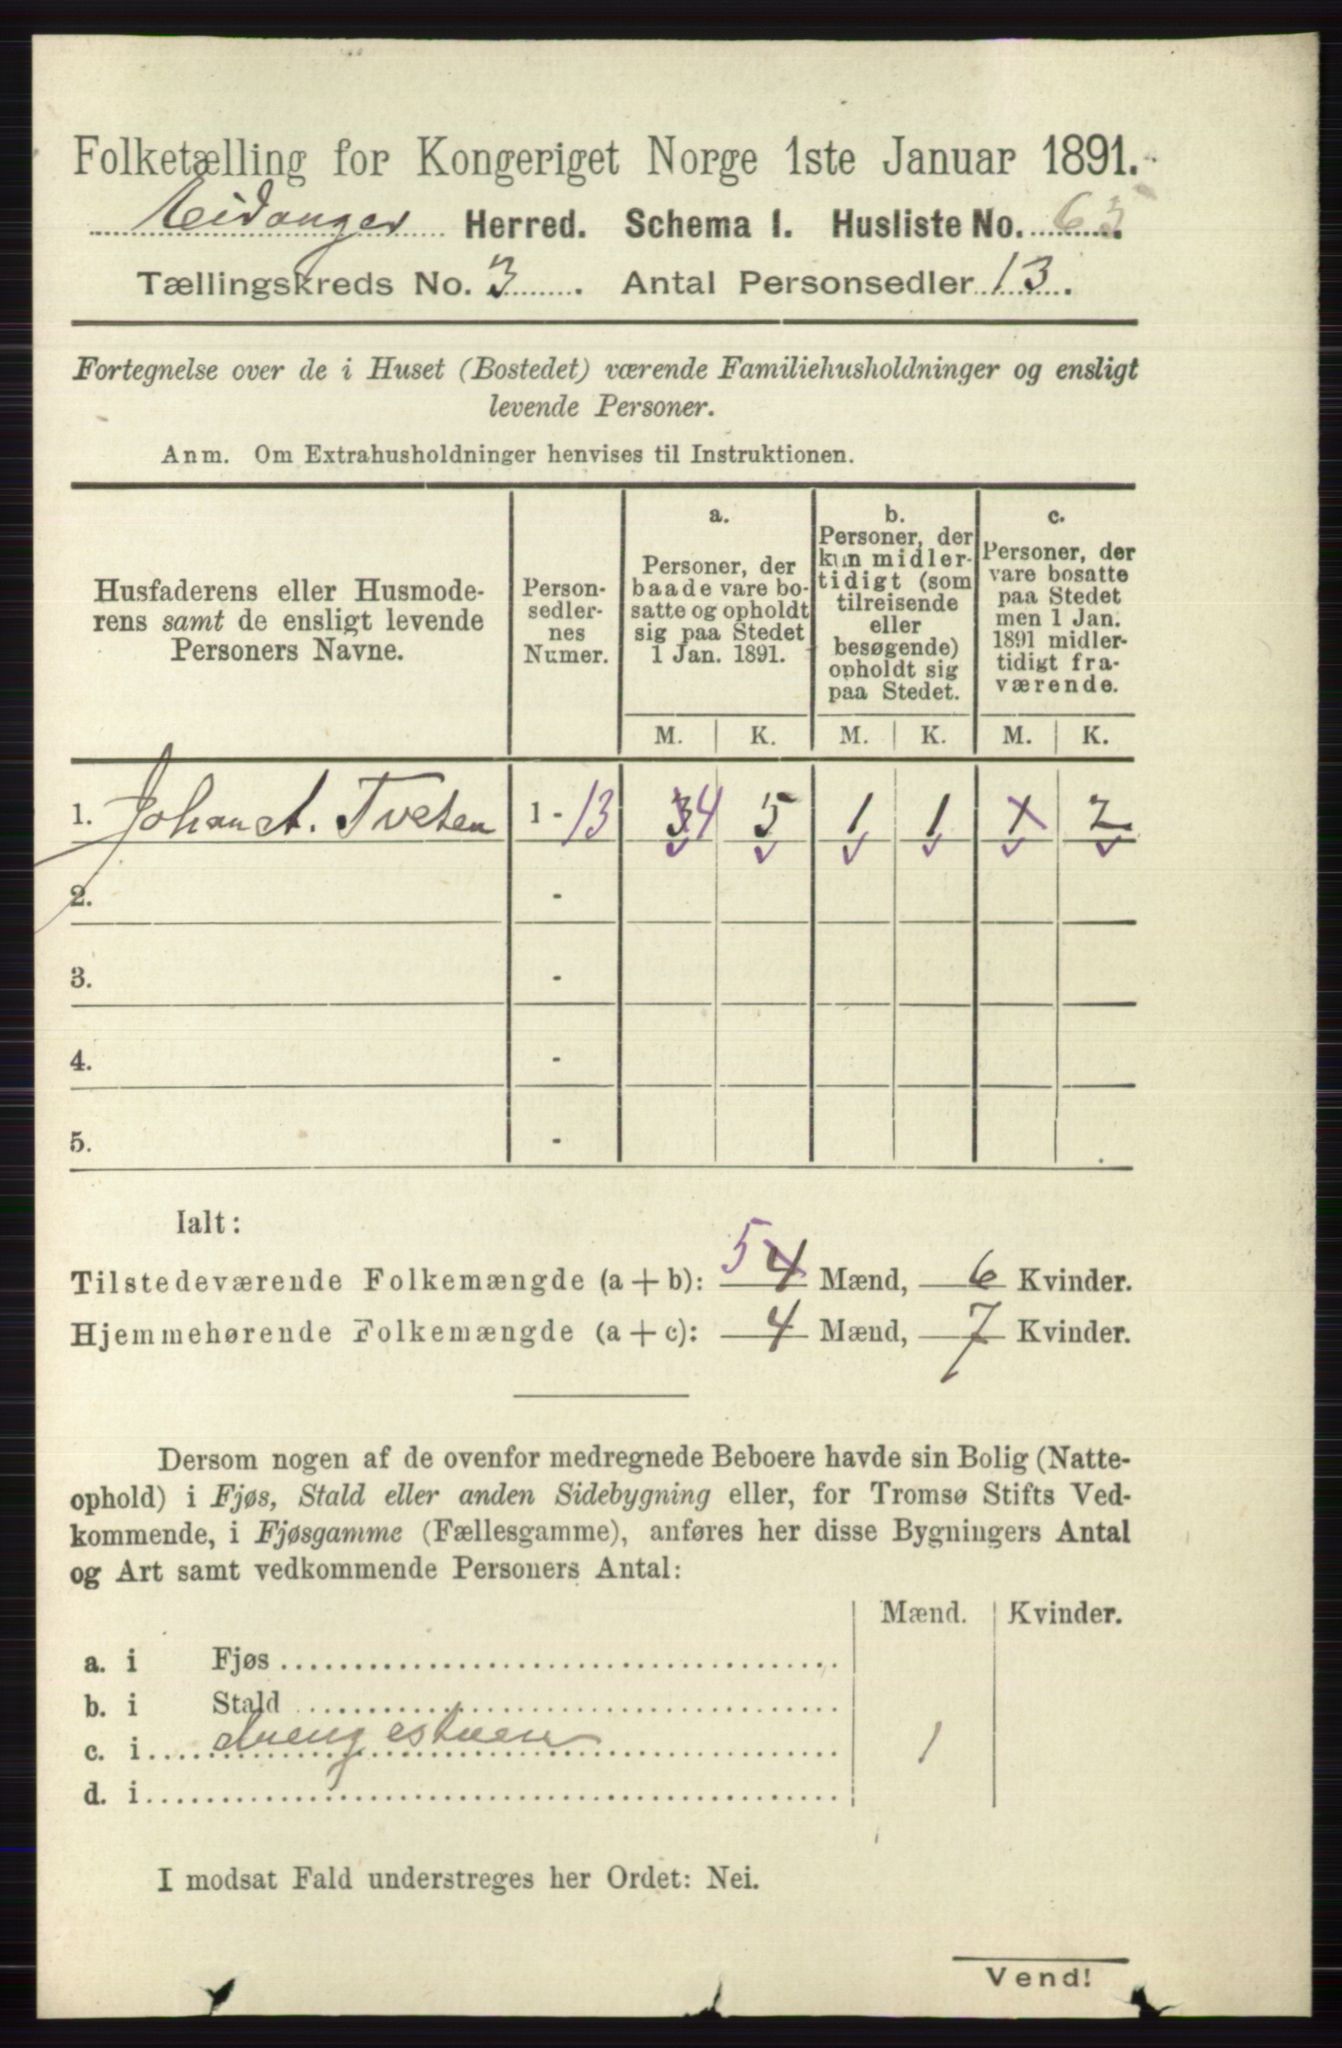 Folketælling for Kongeriget Norge 1ste Januar 1891.
Eidanger Herred. Schema I. Husliste No. 63.
Tællingskreds No. 3. Antal Personsedler 13.
Fortegnelse over de i Huset (Bostedet) værende Familiehusholdninger og ensligt
levende Personer.
Anm. Om Extrahusholdninger henvises til Instruktionen.
Husfaderens eller Husmode-
rens samt de ensligt levende
Personers Navne.
Person-
sedler-
nes
Numer.
a.
Personer, der
baade vare bo-
satte og opholdt
sig paa Stedet
1 Jan. 1891.
b.
Personer, der
kun midler-
tidigt (som
tilreisende
eller
besøgende)
opholdt sig
paa Stedet.
c.
Personer, der
vare bosatte
paa Stedet
men 1 Jan.
1891 midler-
tidigt fra-
værende.
M. K. M. K. M. K.
1. Johan A. Tveten 1 - 13 3 4 5 1 1 1 2
2. -
3. -
4. -
5. -
Ialt:
Tilstedeværende Folkemængde (a + b): 5 4 Mænd, 6 Kvinder.
Hjemmehørende Folkemængde (a + c): 4 Mænd, 7 Kvinder.
Dersom nogen af de ovenfor medregnede Beboere havde sin Bolig (Natte-
ophold) i Fjøs, Stald eller anden Sidebygning eller, for Tromsø Stifts Ved-
kommende, i Fjøsgamme (Fællesgamme), anføres her disse Bygningers Antal
og Art samt vedkommende Personers Antal:
Mænd. Kvinder.
a. i Fjøs
b. i Stald
c. i drengestuen 1
d. i
I modsat Fald understreges her Ordet: Nei.
Vend!